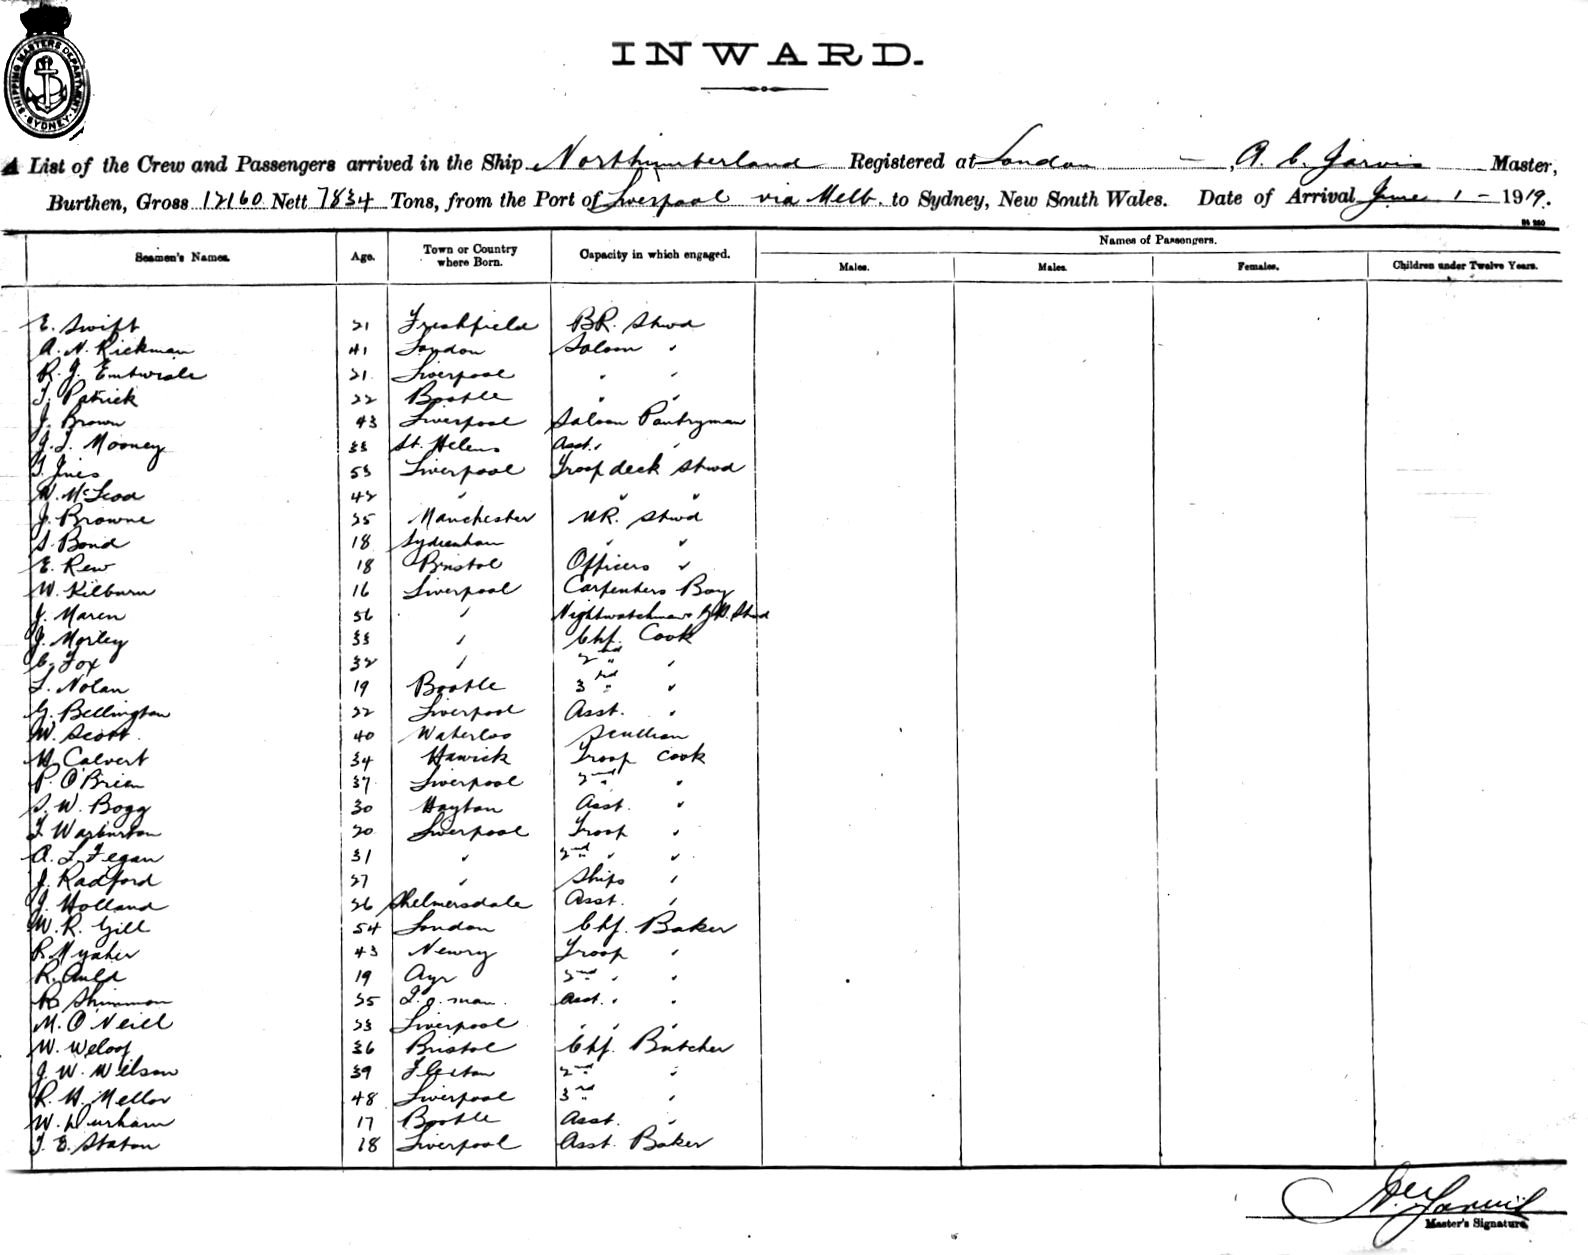 SHIPPING MASTERS DEPARTMENT SYDNEY
INWARD.
A List of the Crew and Passengers arrived in the Ship Northumberland Registered at London, A. C. Jarvis Master,
Burthen, Gross 12160 Nett 7834 Tons, from the Port of Liverpool via Melb. to Sydney, New South Wales. Date of Arrival June 1 - 1919.
Seamen's Names. Age. Town or Country where Born. Capacity in which engaged. Names of Passengers.
Males. Males. Females. Children under Twelve Years.
E. Swift 21 Freshfield BR. Stwd
A. N. Rickman 41 London Saloon "
R. J. Entwisle 21 Liverpool " "
T. Patrick 22 Bootle " "
J. Brown 43 Liverpool Saloon Pantryman
J. T. Mooney 33 St. Helens Asst. "
T. 53 Liverpool Troop deck Stwd
W. McLeod 42 " " "
J. Browne 25 Manchester UR. Stwd
S. Bond 18 Sydenham " "
E. Rew 18 Bristol Officers "
W. Kilburn 16 Liverpool Carpenters Boy
J. Maren 56 " Nightwatchman Stwd
J. Morley 33 " Chf. Cook
C. Fox 32 " 2nd "
L. Nolan 19 Bootle 3rd "
G. Bellington 22 Liverpool Asst. "
W. Scott 40 Waterloo Scullion
H. Calvert 34 Hawick Troop Cook
P. O'Brien 37 Liverpool 2nd "
S. W. Bogg 30 Hayton Asst. "
T. Warburton 20 Liverpool Troop "
A. L. Fegan 31 " 2nd " "
J. Radford 27 " Ships "
J. Holland 26 Skelmersdale Asst. "
W. R. Gill 54 London Chf. Baker
R. 43 Newry Troop "
R. Auld 19 Ayr 2nd " "
R. Shimmon 25 I. o. man. Asst. " "
M. O'Neill 23 Liverpool " " "
W. 36 Bristol Chf. Butcher
J. W. Wilson 39 2nd "
R. H. Mellor 48 Liverpool 3rd "
W. Durham 17 Bootle Asst. "
T. E. Staton 18 Liverpool Asst. Baker
Master's Signature.